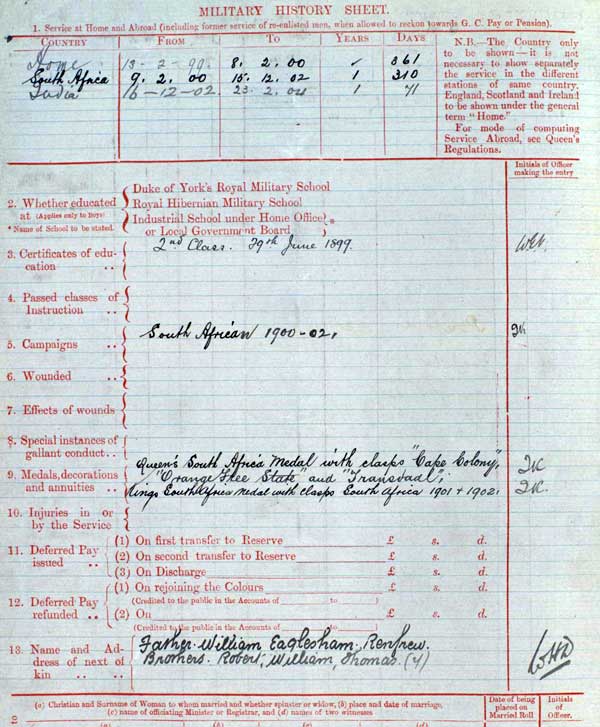 MILITARY HISTORY SHEET.
1. Service at Home and Abroad (including former service of re-enlisted men, when allowed to reckon towards G. C. Pay or Pension).
COUNTRY FROM TO YEARS DAYS
Home 13. 2. 99 8. 2. 00 361
South Africa 9. 2. 00 15. 12. 02 1 310
India 16-12-02 23. 2. 04 1 71
N.B.—The Country only
to be shown—it is not
necessary to show separately
the service in the different
stations of same country.
England, Scotland and Ireland
to be shown under the general
term "Home."
For mode of computing
Service Abroad, see Queen's
Regulations.
Initials of Officer
making the entry
2. Whether educated
at (Applies only to Boys)
* Name of School to be stated.
Duke of York's Royal Military School
Royal Hibernian Military School
Industrial School under Home Office
or Local Government Board
*
3. Certificates of edu-
cation ..
2nd Class. 29th June 1899.
4. Passed classes of
Instruction ..
5. Campaigns ..
South African 1900-02.
6. Wounded ..
7. Effects of wounds
8. Special instances of
gallant conduct..
9. Medals, decorations
and annuities ..
Queen's South Africa Medal with clasps "Cape Colony",
"Orange Free State" and "Transvaal";
Kings South Africa Medal with clasps South Africa 1901 + 1902.
10. Injuries in or
by the Service
11. Deferred Pay
issued ..
(1) On first transfer to Reserve £ s. d.
(2) On second transfer to Reserve £ s. d.
(3) On Discharge £ s. d.
12. Deferred Pay
refunded ..
(1) On rejoining the Colours £ s. d.
(Credited to the public in the Accounts of to )
(2) On £ s. d.
(Credited to the public in the Accounts of to )
13. Name and Ad-
dress of next of
kin .. ..
Father William Eaglesham, Renfrew.
Brothers. Robert, William, Thomas. (y)
(a) Christian and Surname of Woman to whom married and whether spinster or widow, (b) place and date of marriage,
(c) name of officiating Minister or Registrar, and (d) names of two witnesses
Date of being
placed on
Married Roll
Initials
of
Officer.